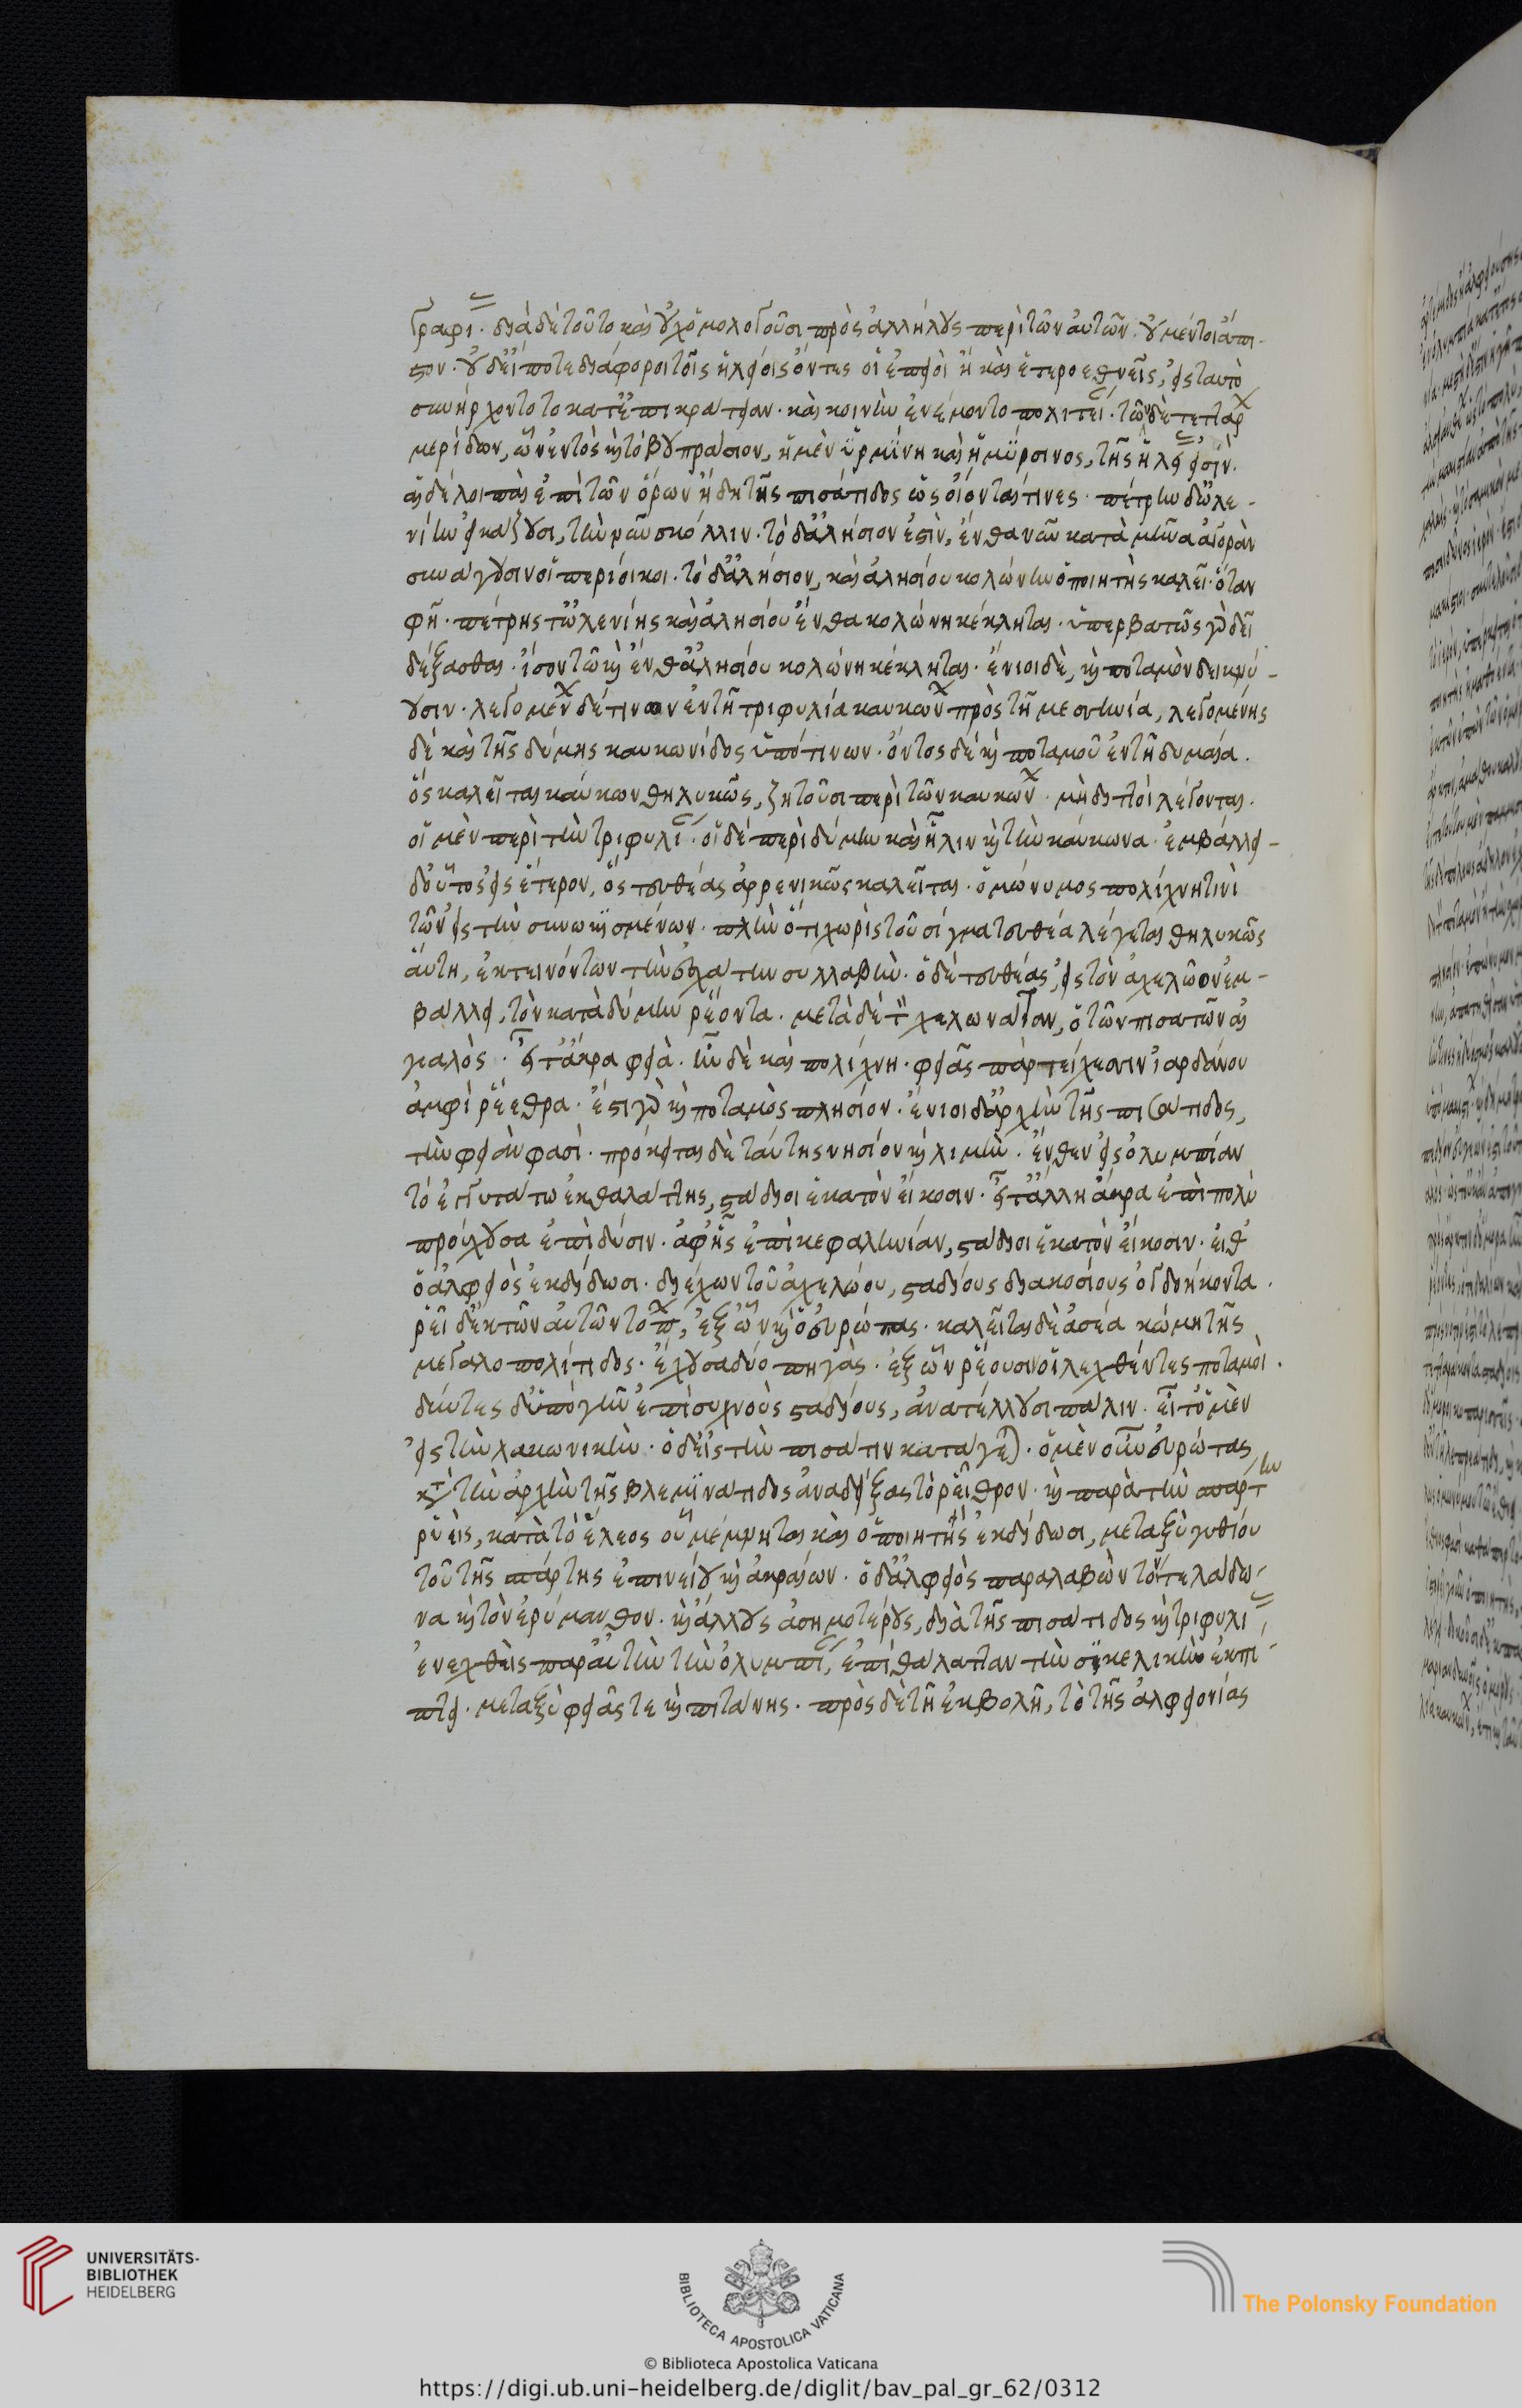 γραφῆ. διὰ δὲ τοῦτο καὶ οὐχ ὁμολογοῦσι πρὸς ἀλλήλους περὶ τῶν αὐτῶν. οὐ μέντοι ἄπι-
στον. οὐδ' εἴ ποτε διάφοροι τοῖς ἠλείοις ὄντες οἱ ἐπειοὶ ἢ καὶ ἑτεροεθνεῖς, εἰς ταυτὸ
συνήρχοντο τὸ κατ' ἐπικράτειαν. καὶ κοινὴν ἐνέμοντο πολιτεί. τῶν δὲ τεττάρ
μερίδων, ὧν ἐντὸς καὶ τὸ βουπράσιον, ἡ μὲν ὑρμίνη καὶ ἡ μύρσινος, τῆς ἠλείας εἰσίν.
αἱ δὲ λοιπαὶ ἐπὶ τῶν ὅρων ἤδη τῆς πισάτιδος ὡς οἴονταί τινες. πέτρην δ' ὠλε-
νίην εἰκάζουσι, τὴν νῦν σκόλλιν. τὸ δ' ἀλήσιον ἐστὶν, ἔνθα νῦν κατὰ μῆνα ἀγορὰν
συνάγουσιν οἱ περίοικοι. τὸ δ' ἀλήσιον, καὶ ἀλησίου κολώνην ὁ ποιητὴς καλεῖ. ὅταν
φῆ. πέτρης τ' ὠλενίης καὶ ἀλησίου ἔνθα κολώνη κέκληται. ὑπερβατῶς γὰρ δεῖ
δέξασθαι. ἴσον τῶ καὶ ἔνθ' ἀλησίου κολώνη κέκληται. ἔνιοι δὲ, καὶ ποταμὸν δεικνύ-
ουσιν. λεγομέν δέ τινων ἐν τῆ τριφυλία καυκών πρὸς τῆ μεσσηνία, λεγομένης
δὲ καὶ τῆς δύμης καυκωνίδος ὑπό τινων. ὄντος δὲ καὶ ποταμοῦ ἐν τῆ δυμαία.
ὃς καλεῖται καύκων θηλυκῶς, ζητοῦσι περὶ τῶν καυκών. μὴ διττοὶ λέγονται.
οἱ μὲν περὶ τὴν τριφυλί. οἱ δὲ περὶ δύμην καὶ ἦλιν καὶ τὴν καύκωνα. ἐμβάλλει-
δ' οὗτος εἰς ἕτερον, ὃς τευθέας ἀρρενικῶς καλεῖται. ὁμώνυμος πολίχνη τινὶ
τῶν εἰς τὴν συνωκισμένων. πλὴν ὅτι χωρὶς τοῦ σίγμα τευθέα λέγεται θηλυκῶς
αὕτη, ἐκτεινόντων τὴν ἐσχάτην συλλαβὴν. ὁ δὲ τευθέας, εἰς τὸν ἀχελῶον ἐμ-
βάλλει, τὸν κατὰ δύμην ῥέοντα. μετὰ δὲ τὸν χελωνάταν, ὁ τῶν πισατῶν αἰ
γιαλὸς. εἶτ' ἄκρα φειὰ. ἦν δὲ καὶ πολίχνη. φειᾶς πὰρ τείχεσσιν ἰαρδάνου
ἀμφὶ ῥέεθρα. ἔστι γὰρ καὶ ποταμὸς πλησίον. ἔνιοι δ' ἀρχὴν τῆς πισάτιδος,
τὴν φειάν φασὶ. πρόκειται δὲ ταύτης νησίον καὶ λιμὴν. ἔνθεν εἰς ὀλυμπίαν
τὸ ἐγγυτάτω ἐκ θαλάττης, στάδιοι ἑκατὸν εἴκοσιν. εἶτ' ἄλλη ἄκρα ἐπὶ πολὺ
προὔχουσα ἐπὶ δύσιν. ἀφ' ἧς ἐπὶ κεφαλληνίαν, στάδιοι ἑκατὸν εἴκοσιν. εἶθ'
ὁ ἀλφειὸς ἐκδίδωσι. διέχων τοῦ ἀχελώου, σταδίους διακοσίους ὀγδοήκοντα.
ῥεῖ δ' ἐκ τῶν αὐτῶν τόπ, ἐξ ὧν καὶ ὁ εὐρώτας. καλεῖται δὲ ἀσέα κώμη τῆς
μεγαλοπολίτιδος. ἔχουσα δύο πηγὰς. ἐξ ὧν ῥέουσιν οἱ λεχθέντες ποταμοὶ.
δύντες δ' ὑπὸ γῆν ἐπὶ συχνοὺς σταδίους, ἀνατέλλουσι πάλιν. εἶτ' ὁ μὲν
εἰς τὴν λακωνικὴν. ὁ δ' εἰς τὴν πισάτιν κατάγε. ὁ μὲν οὖν εὐρώτας
κατὰ τὴν ἀρχὴν τῆς βλεμινάτιδος ἀναδείξας τὸ ῥεῖθρον. καὶ παρὰ τὴν σπάρτην
ῥυεὶς, κατὰ τὸ ἕλεος οὗ μέμνηται καὶ ὁ ποιητής ἐκδίδωσι, μεταξὺ γυθίου
τοῦ τῆς σπάρτης ἐπινείου καὶ ἀκραίων. ὁ δ' ἀλφειὸς παραλαβὼν τόντε λάδω-
να καὶ τὸν ἐρύμανθον. καὶ ἄλλους ἀσημοτέρους, διὰ τῆς πισάτιδος καὶ τριφυλί
ἐνεχθεὶς παρ' αὐτὴν τὴν ὀλυμπί, ἐπὶ θάλατταν τὴν σικελικὴν ἐκπί-
πτει. μεταξὺ φειᾶς τε καὶ πιτάνης. πρὸς δὲ τῆ ἐκβολῆ, τὸ τῆς ἀλφειονίας
UNIVERSITÄTS-
BIBLIOTHEK
HEIDELBERG
BIBLIOTECA APOSTOLICA VATICANA
The Polonsky Foundation
© Biblioteca Apostolica Vaticana
https://digi.ub.uni-heidelberg.de/diglit/bav_pal_gr_62/0312